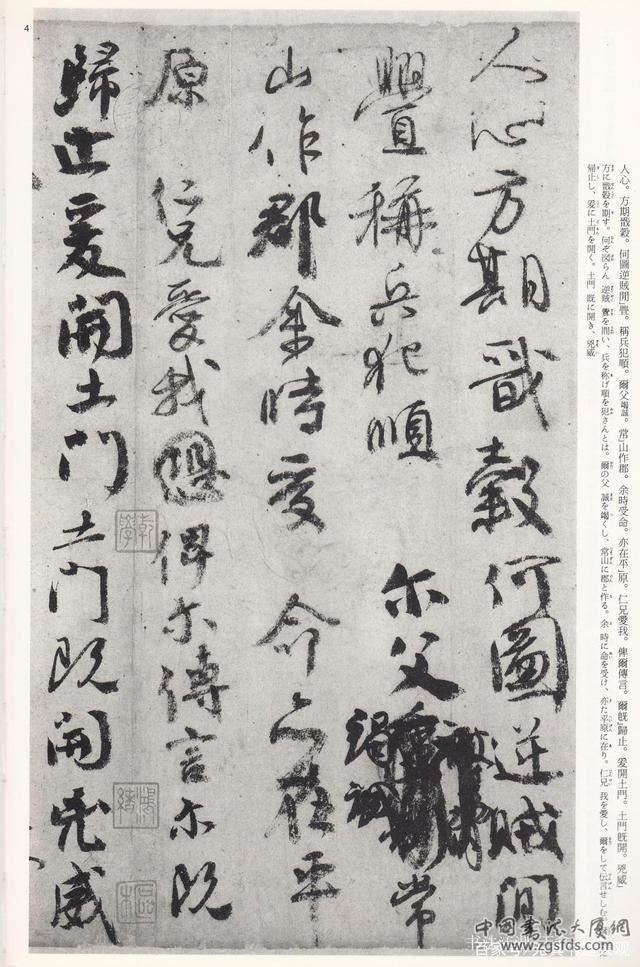 人心方期戩穀何圖逆賊間
釁稱兵犯順 尔父竭誠常
山作郡余時受 命亦在平
原 仁兄愛我俾尔傳言尔既
歸止爰開土門土門既開兇威
人心。方期戩穀。何圖逆賊閒」釁。稱兵犯順。爾父竭誠。常」山作郡。余時受命。亦在平」原。仁兄愛我。俾爾傳言。爾旣」歸止。爰開土門。土門旣開。兇威」
方に戩穀を期す。何ぞ図らん 逆賊 釁を間い、兵を称げ順を犯さんとは。爾の父 誠を竭くし、常山に郡と作る。余 時に命を受け、亦た平原に在り。仁兄 我を愛し、爾をして伝言せしむ。
帰止し、爰に土門を開く。土門 既に開き、兇威
4
中國書法大厦網
www.zgsfds.com